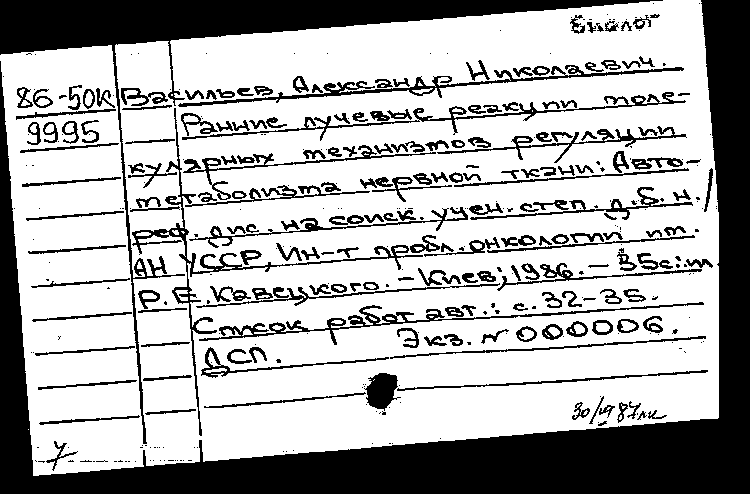 Биолог
86-50к Васильев, Александр Николаевич.
9995 Ранние лучевые реакции моле-
кулярных механизмов регуляции
метаболизма нервной ткани: Авто-
реф. дис. на соиск. учен. степ. д. б. н. /
АН УССР, Ин-т пробл. онкологии им.
Р. Е. Кавецкого. - Киев; 1986. - 35с.: ил.
Список работ авт.: с. 32-35.
ДСП. Экз. № 000006.